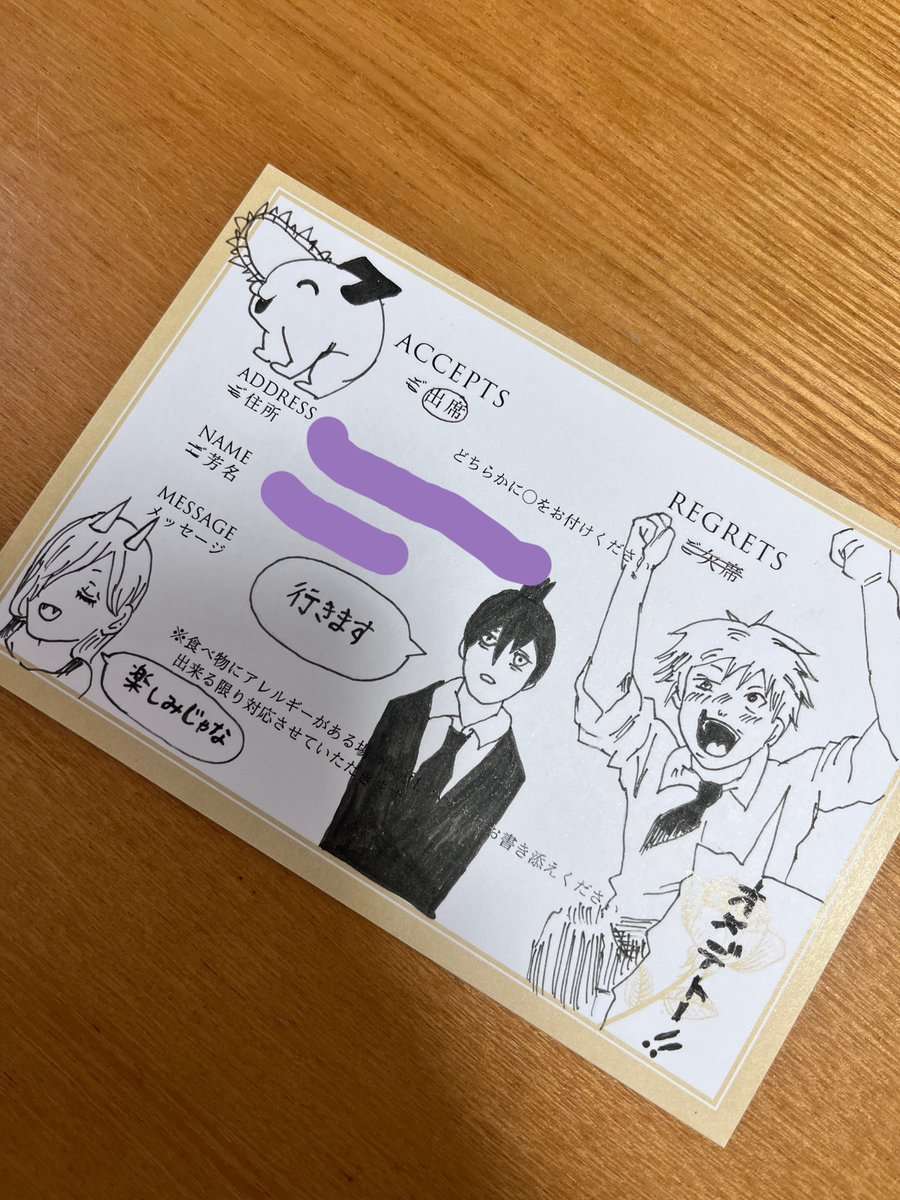 ACCEPTS
ご出席
ADDRESS
ご住所
どちらかに○をお付けくださ
NAME
ご芳名
REGRETS
ご欠席
MESSAGE
メッセージ
行きます
※食べ物にアレルギーがある場
出来る限り対応させていただ
お書き添えください
楽しみじゃな
オメデトー!!